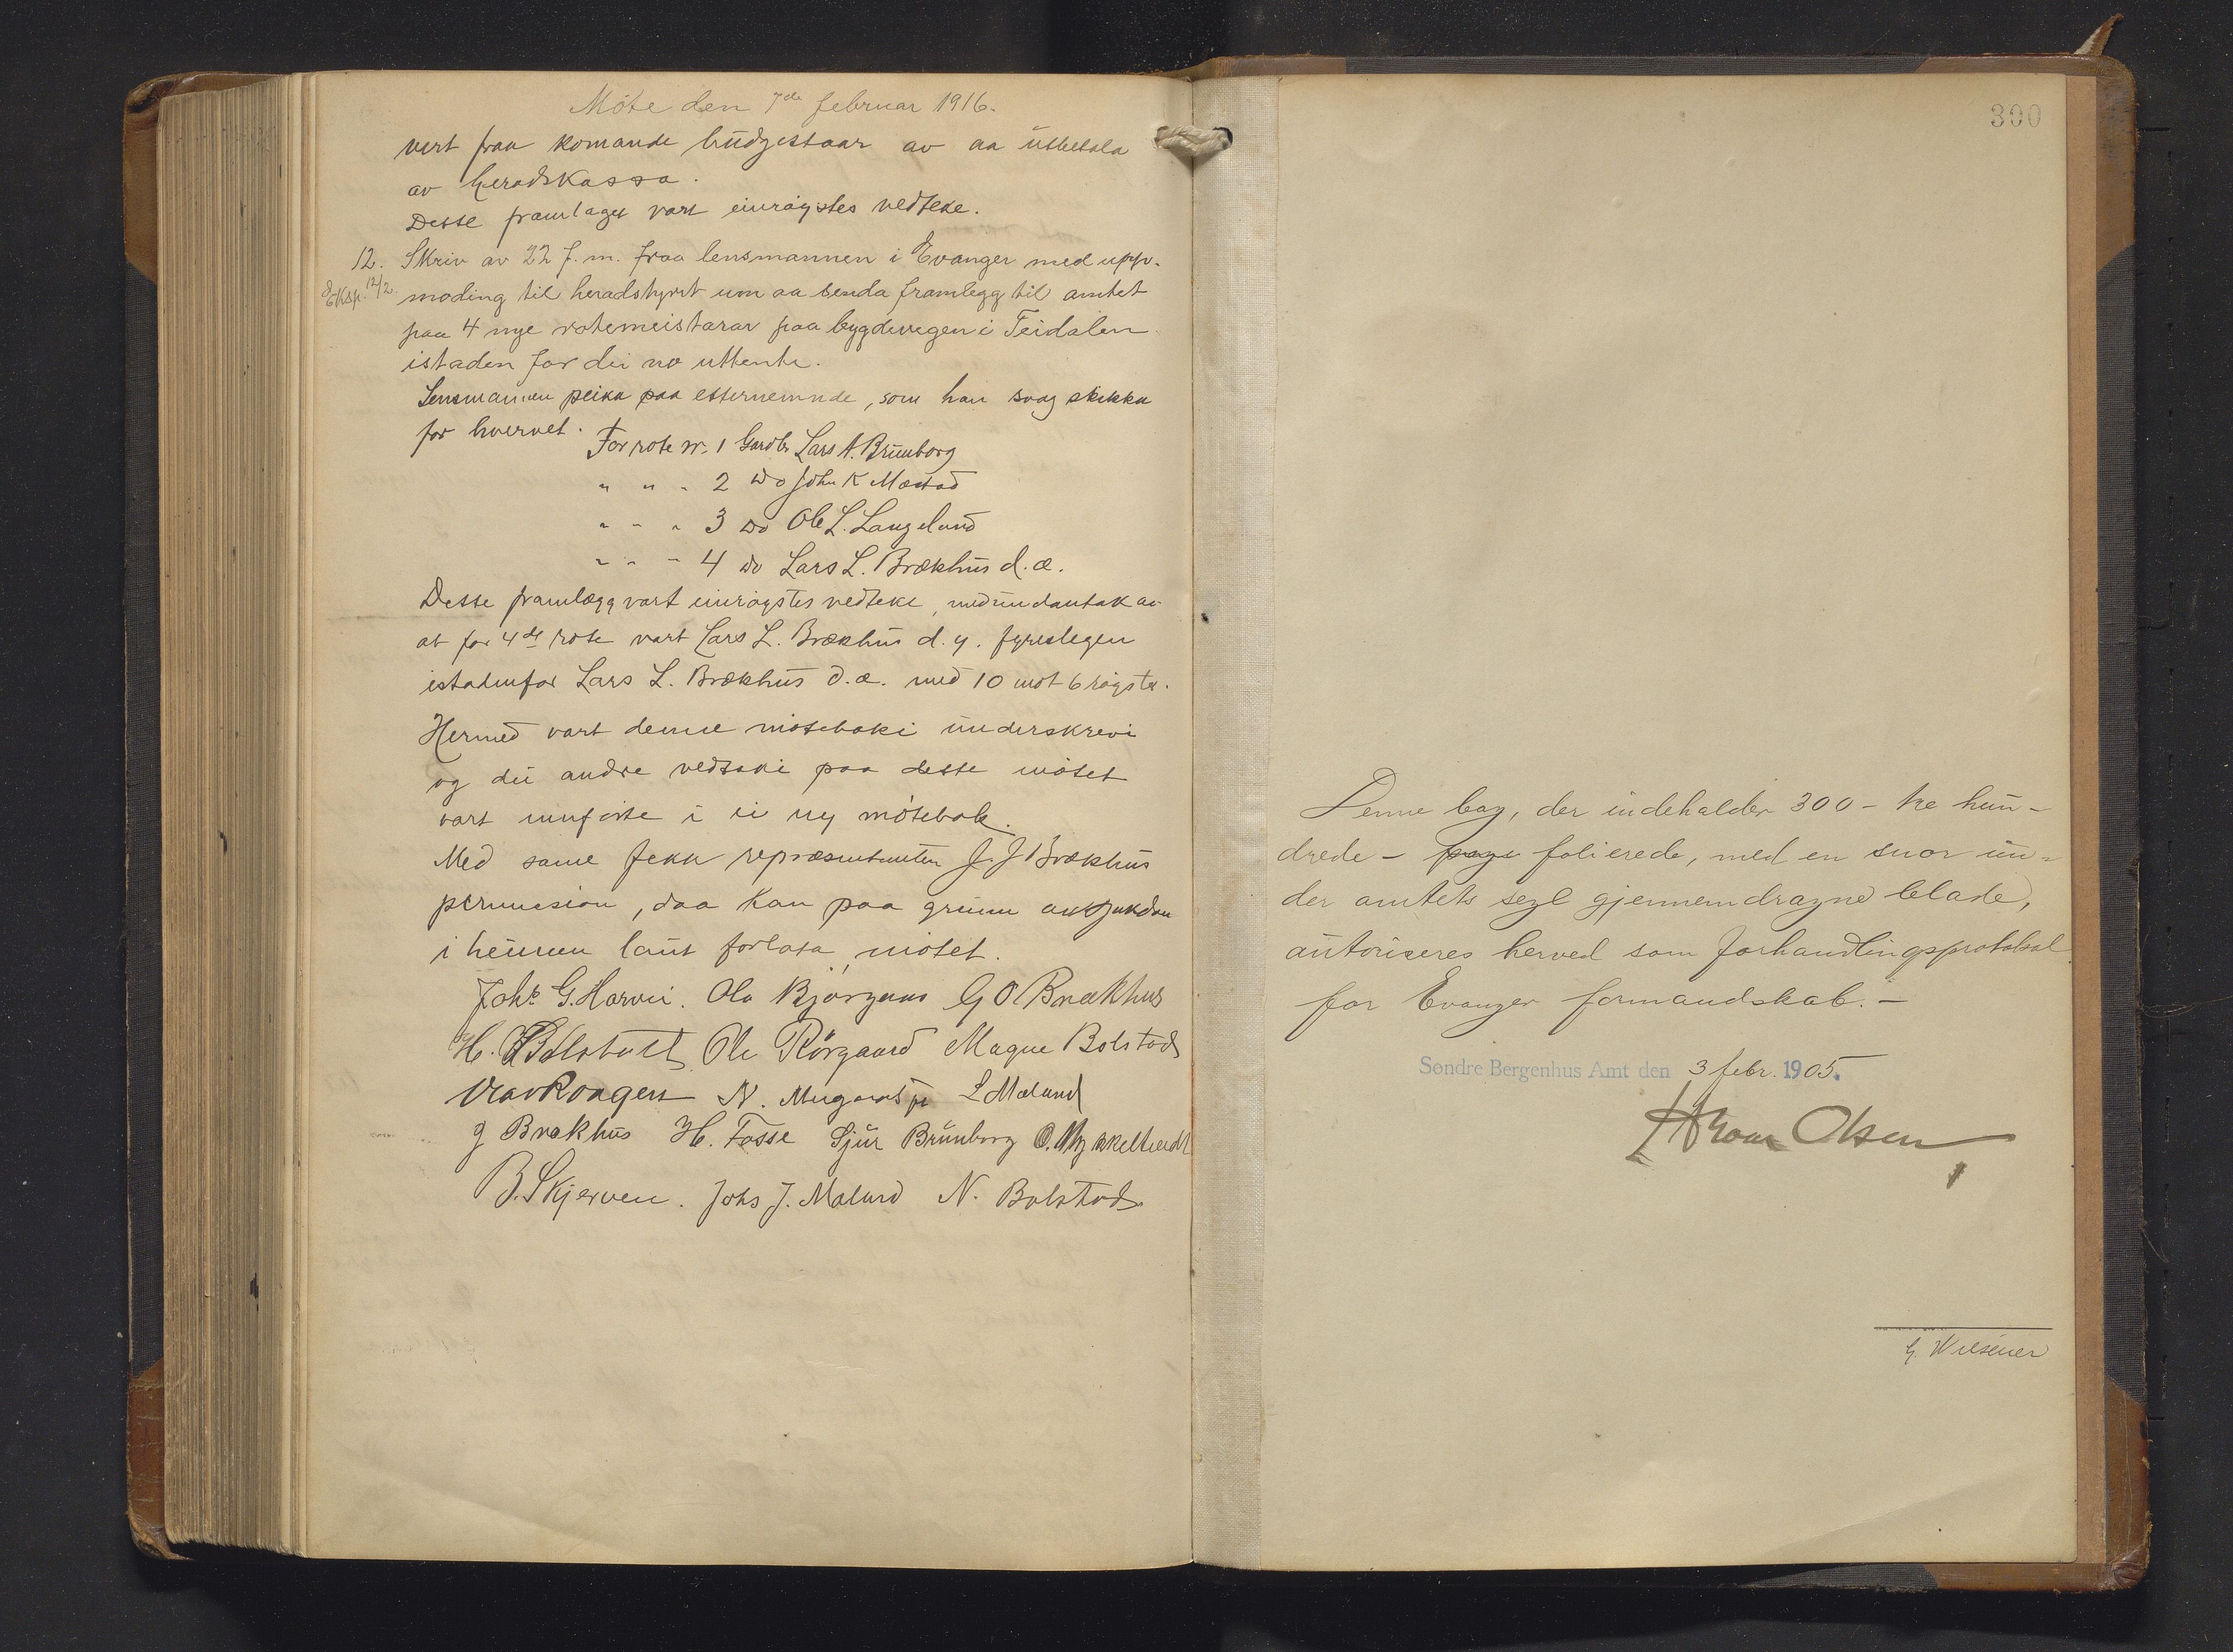 Møte den 7de februar 1916.
vert fraa komande budgestaar av aa utbetala
av heradskassa.
Desse framlagi vart einrøystes vedteke.
12. Skriv av 22 f.m. fraa lensmannen i Evanger med upp-
Eksp. 12/2 moding til heradstyret um aa senda framlegg til amtet
paa 4 nye rotemeistarar paa bygdevegen i Teidalen
istaden for dei no uttente.
Lensmannen peika paa etternemnde, som han svag skikka
for hvervet.
For rote nr. 1 Gardbr Lars A. Brunborg
" " " 2 do John K Mæstad
" " " 3 do Ole L. Langeland
" " " 4 do Lars L. Brækhus d.æ.
Desse framlægg vart einrøystes vedteke, med undantak av
at for 4de rote vart Lars L. Brækhus d.y. fyreslegen
istadenfor Lars L. Brækhus d.æ. med 10 mot 6 røyster.
Hermed vart denne møteboki underskrevi
og dei andre vedtaki paa dette møtet
vart innførte i ei ny møtebok.
Med same fekk repræsentanten J. J Brækhus
permision, daa han paa grunn av sjukdom
i heimen laut forlata møtet.
Johs G. Horvei. Ola Bjørgaas G O. Brækhus
H. Bolstad Ole Rørgaard Magne Bolstad
Olav Rongen N. Mugaas L Mæland
J Brækhus H. Fosse Sjur Brunborg O.
B. Skjerven. Johs J. Mæland N. Bolstad
300
Denne bog, der indeholder 300 - tre hun-
drede - page folierede, med en snor un-
der amtets segl gjennemdragne blade,
autoriseres herved som forhandlingsprotokol
for Evanger formandskab. -
Søndre Bergenhus Amt den 3 febr. 1905.
Hroar Olsen
G. Wiesener